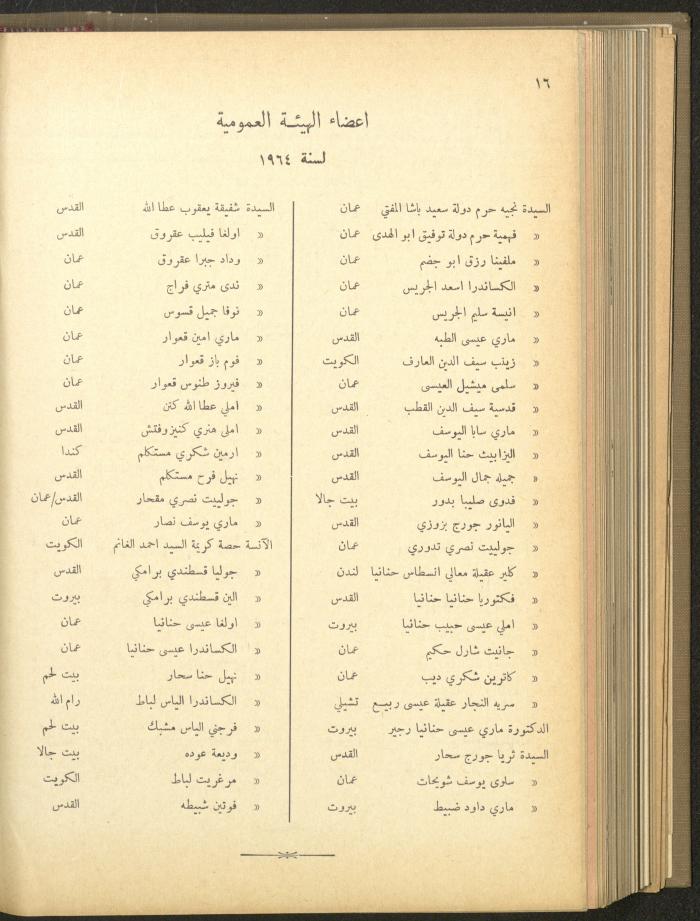 ١٦
اعضاء الهيئة العمومية
لسنة ١٩٦٤
السيدة نجيه حرم دولة سعيد باشا المفتي عمان
» فهمية حرم دولة توفيق ابو الهدى عمان
» ملفينا رزق ابو جضم عمان
» الكساندرا اسعد الجريس عمان
» انيسة سليم الجريس عمان
» ماري عيسى الطبه القدس
» زينب سيف الدين العارف الكويت
» سلمى ميشيل العيسى عمان
» قدسية سيف الدين القطب القدس
» ماري سابا اليوسف القدس
» اليزابيث حنا اليوسف القدس
» جميله جمال اليوسف القدس
» فدوى صليبا بدور بيت جالا
» اليانور جورج بزوزي القدس
» جولييت نصري تدوري عمان
» كلير عقيلة معالي انسطاس حنانيا لندن
» فكتوريا حنانيا حنانيا القدس
» املي عيسى حبيب حنانيا بيروت
» جانيت شارل حكيم عمان
» كاترين شكري ديب عمان
» سريه النجار عقيلة عيسى ربيع تشيلي
الدكتورة ماري عيسى حنانيا رجير بيروت
السيدة ثريا جورج سحار القدس
» سلوى يوسف شويحات عمان
» ماري داود ضبيط بيروت
السيدة شفيقة يعقوب عطا الله القدس
» اولغا فيليب عقروق القدس
» وداد جبرا عقروق عمان
» ندى متري فراج عمان
» نوفا جميل قسوس عمان
» ماري امين قعوار عمان
» فوم باز قعوار عمان
» فيروز طنوس قعوار عمان
» املي عطا الله كتن القدس
» املي هنري كنيزوفتش القدس
» ارمين شكري مستكلم كندا
» نهيل فرح مستكلم القدس
» جولييت نصري مقحار القدس/عمان
» ماري يوسف نصار عمان
الآنسة حصة كريمة السيد احمد الغانم الكويت
» جوليا قسطندي برامكي القدس
» الين قسطندي برامكي بيروت
» اولغا عيسى حنانيا عمان
» الكساندرا عيسى حنانيا عمان
» نهيل حنا سحار بيت لحم
» الكساندرا الياس لباط رام الله
» فرجني الياس مشبك بيت لحم
» وديعة عوده بيت جالا
» مرغريت لباط الكويت
» فوتين شبيطه القدس